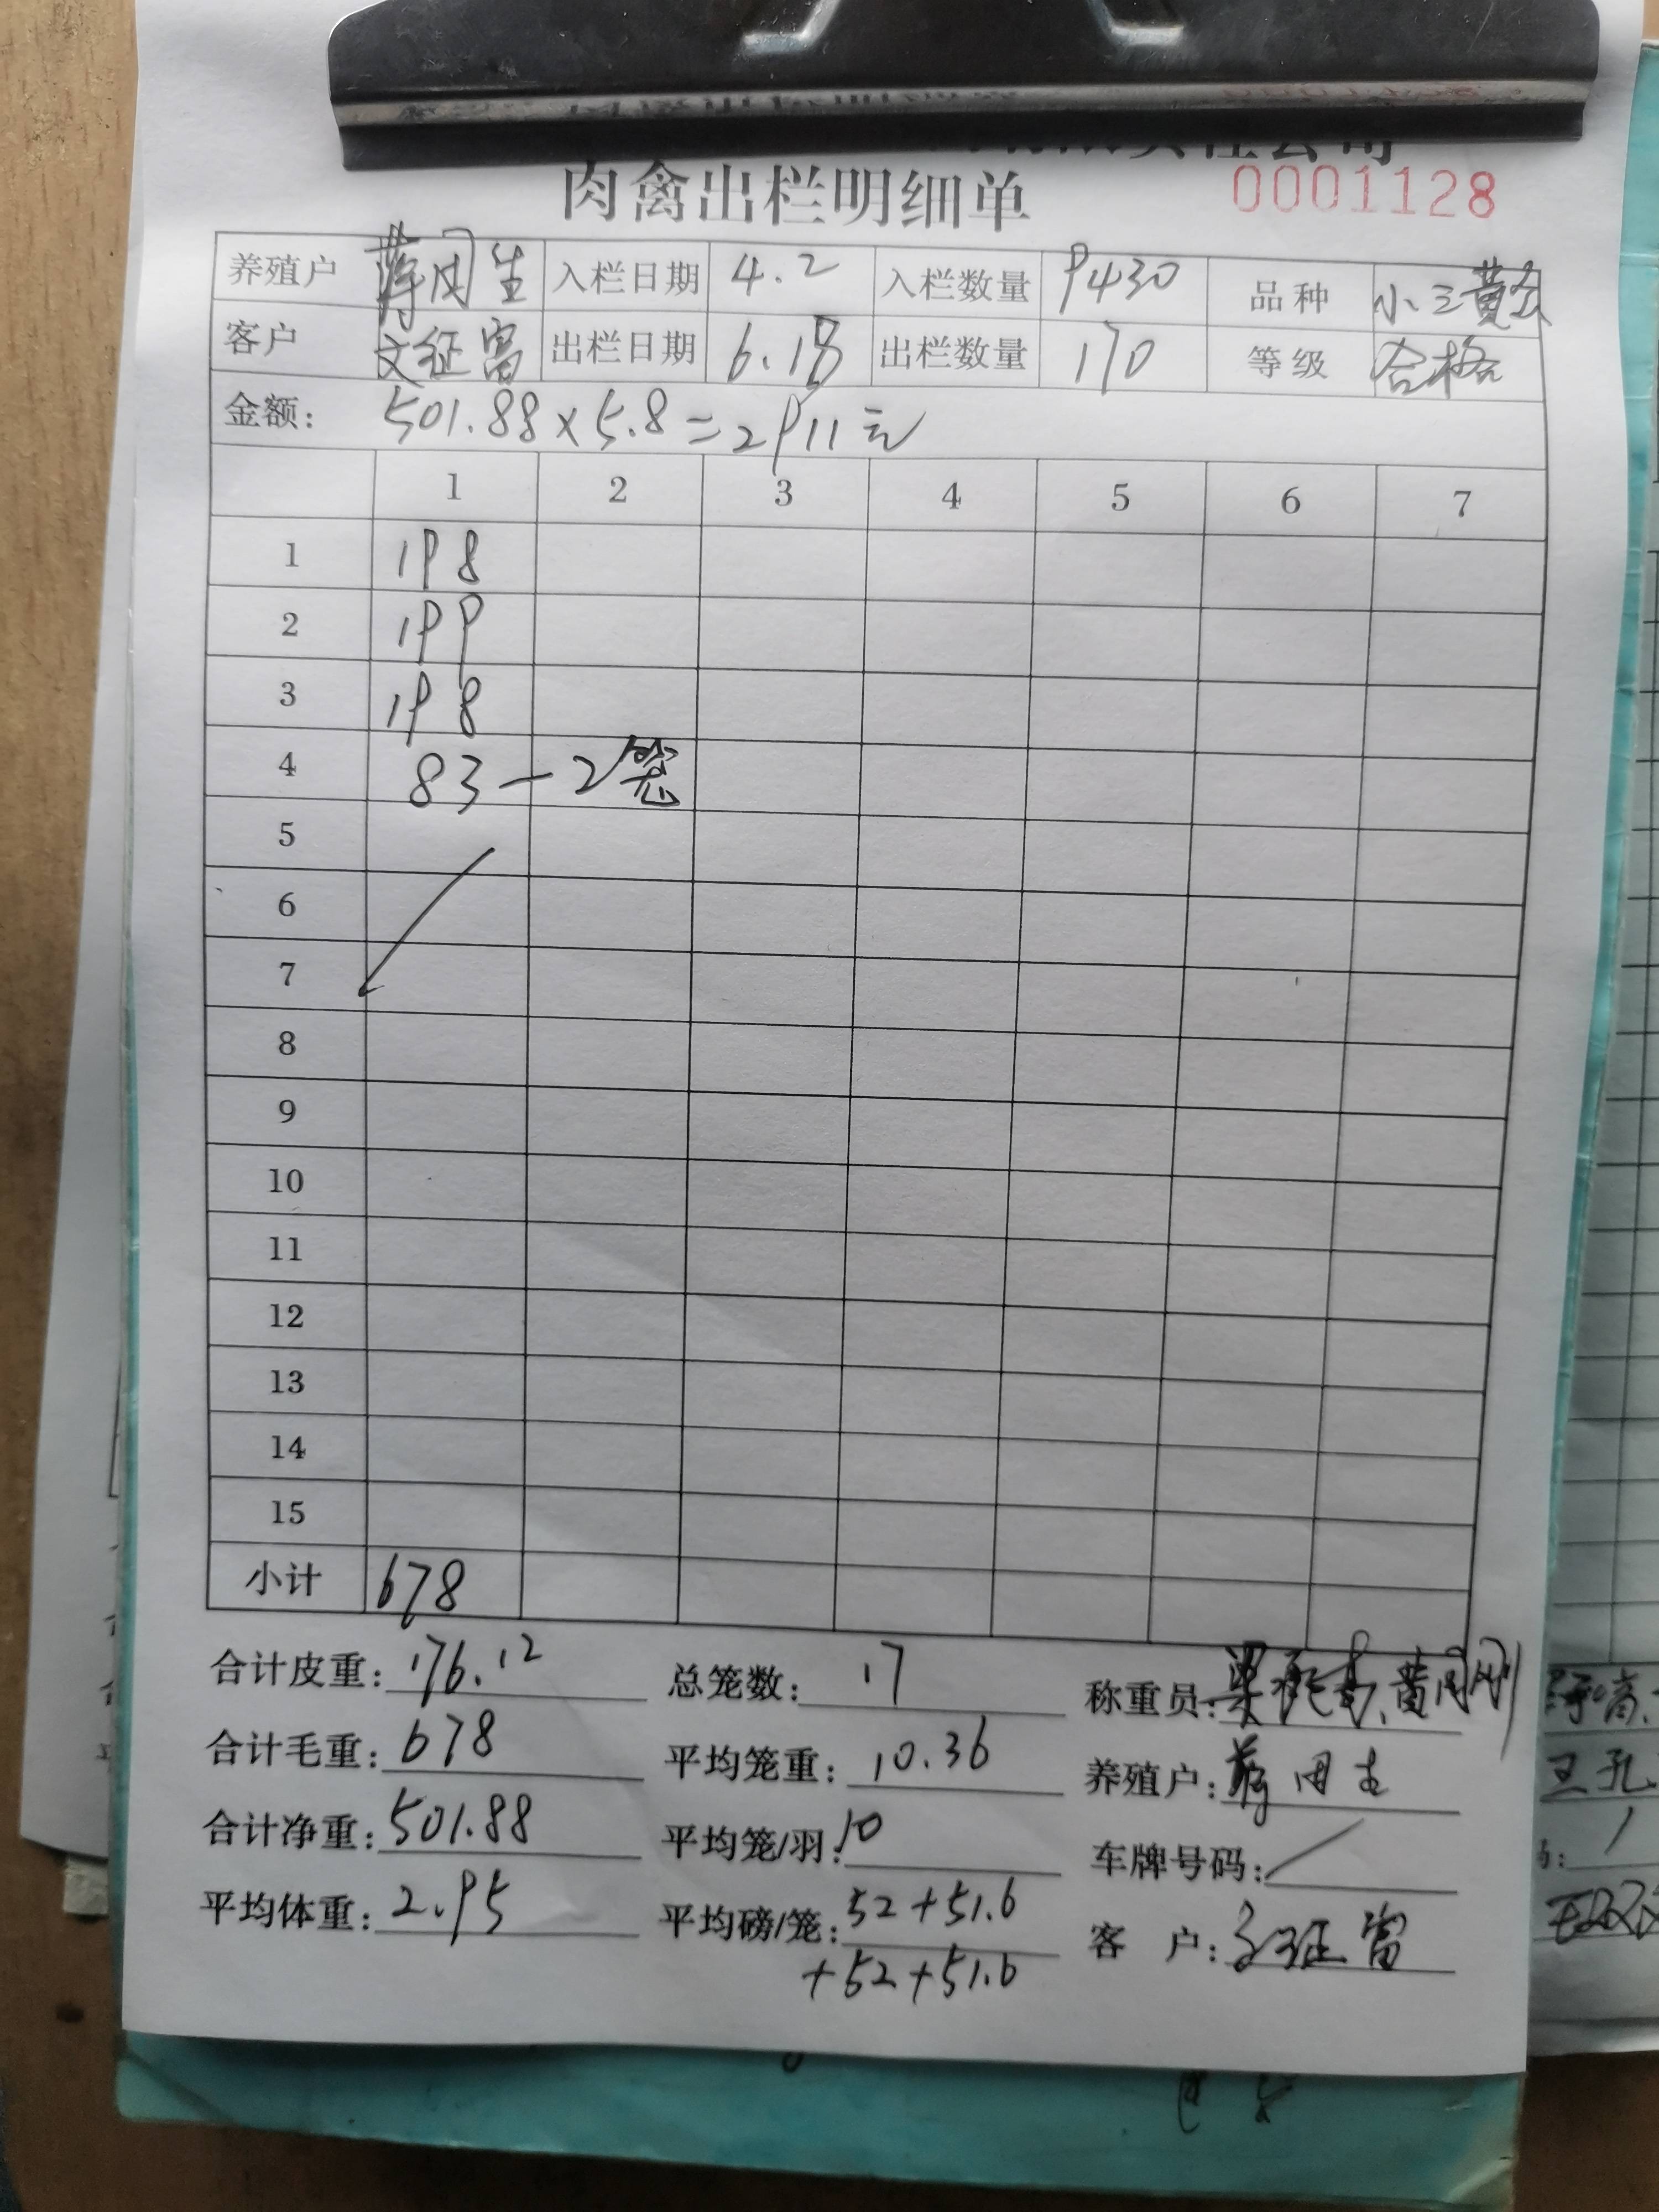 责任公司
肉禽出栏明细单 0001128
养殖户 蒋用生 入栏日期 4.2 入栏数量 9430 品种 小三黄公
客户 文征富 出栏日期 6.18 出栏数量 170 等级 合格
金额: 501.88×5.8=2911元
1 2 3 4 5 6 7
1 198
2 199
3 198
4 83—2笼
5
6
7
8
9
10
11
12
13
14
15
小计 678
合计皮重: 176.12 总笼数: 17 称重员: 黄用刚
合计毛重: 678 平均笼重: 10.36 养殖户: 蒋用生
合计净重: 501.88 平均笼/羽: 10 车牌号码: /
平均体重: 2.95 平均磅/笼: 52+51.6 客 户: 文征富
+52+51.6